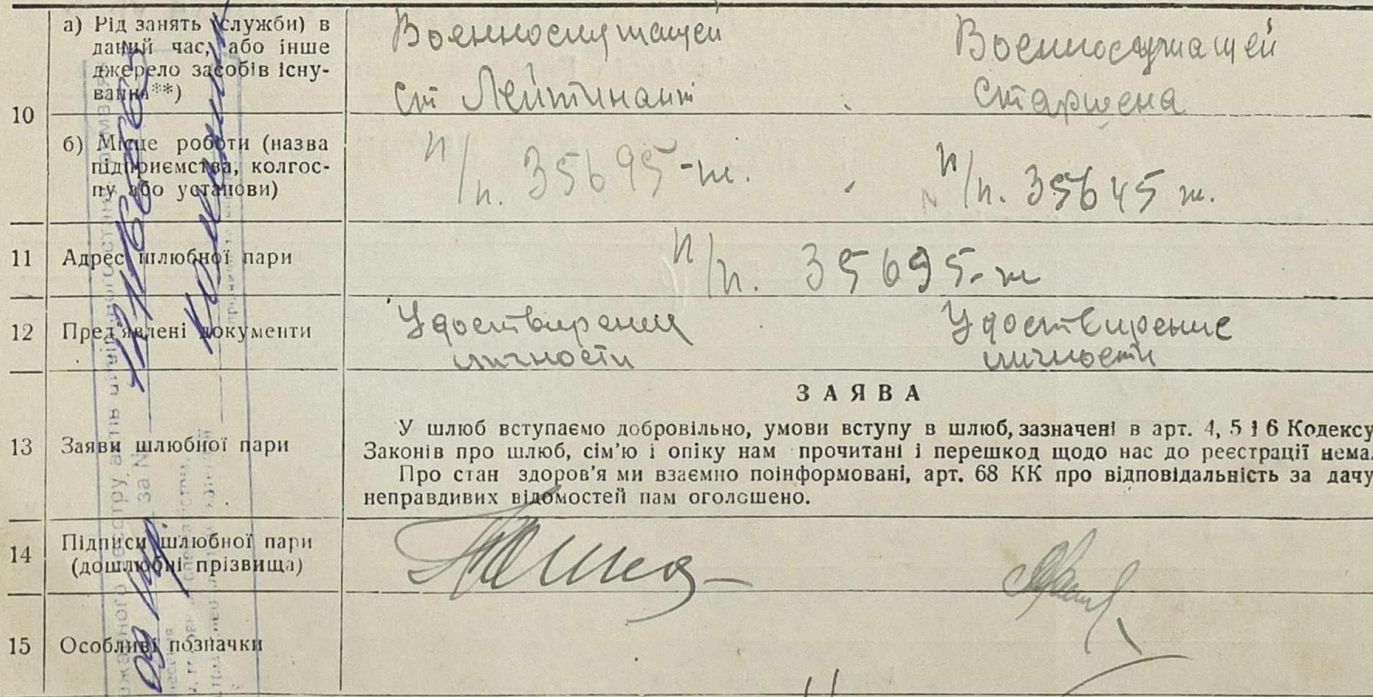 10
а) Рід занять (служби) в
даний час, або інше
джерело засобів існу-
вання**)
Военнослужащей
ст Лейтинант
Военнослужащей
старшена
б) Місце роботи (назва
підприємства, колгос-
пу або установи)
п/п. 35695-ж.
п/п. 35645 ж.
11 Адрес шлюбної пари
п/п. 35695-ж
12 Пред'явлені документи
Удоствирения
личности
Удоствирение
личности
13 Заяви шлюбної пари
ЗАЯВА
У шлюб вступаємо добровільно, умови вступу в шлюб, зазначені в арт. 4, 5 і 6 Кодексу
Законів про шлюб, сім'ю і опіку нам прочитані і перешкод щодо нас до реєстрації нема.
Про стан здоров'я ми взаємно поінформовані, арт. 68 КК про відповідальність за дачу
неправдивих відомостей нам оголошено.
14 Підписи шлюбної пари
(дошлюбні прізвища)
15 Особливі позначки
за №